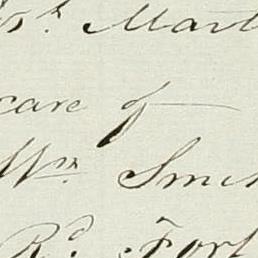 Mart
care of
Wm Smi
Rd Fort